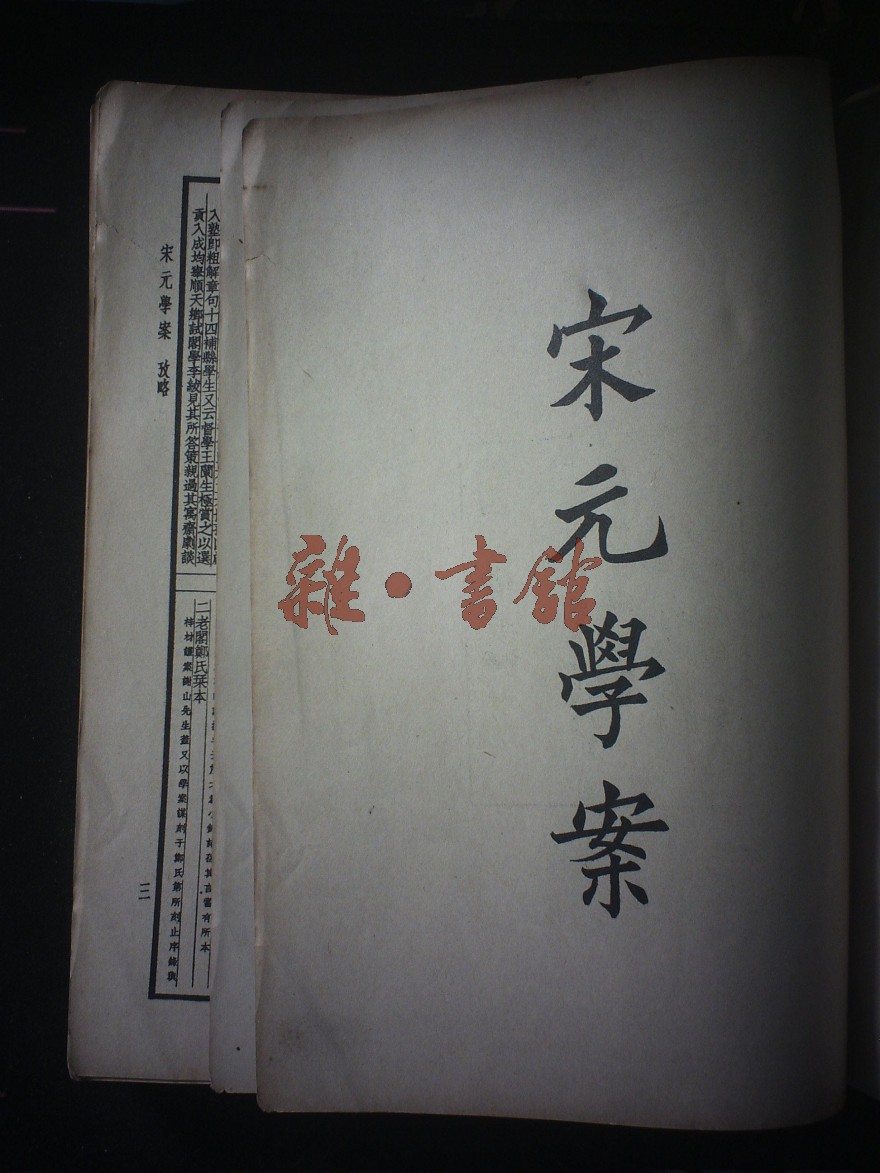 宋元學案
雜·書館
入塾卽粗解章句十四補縣學生又云督學王蘭生極賞之以選
貢入成均舉順天鄉試閣學李紱見其所答策親過其寓齋劇談
二老閣鄭氏栞本
梓材謹案謝山先生蓋又以學案謀刻于鄭氏第所刻止序錄與
宋元學案 攷略
三